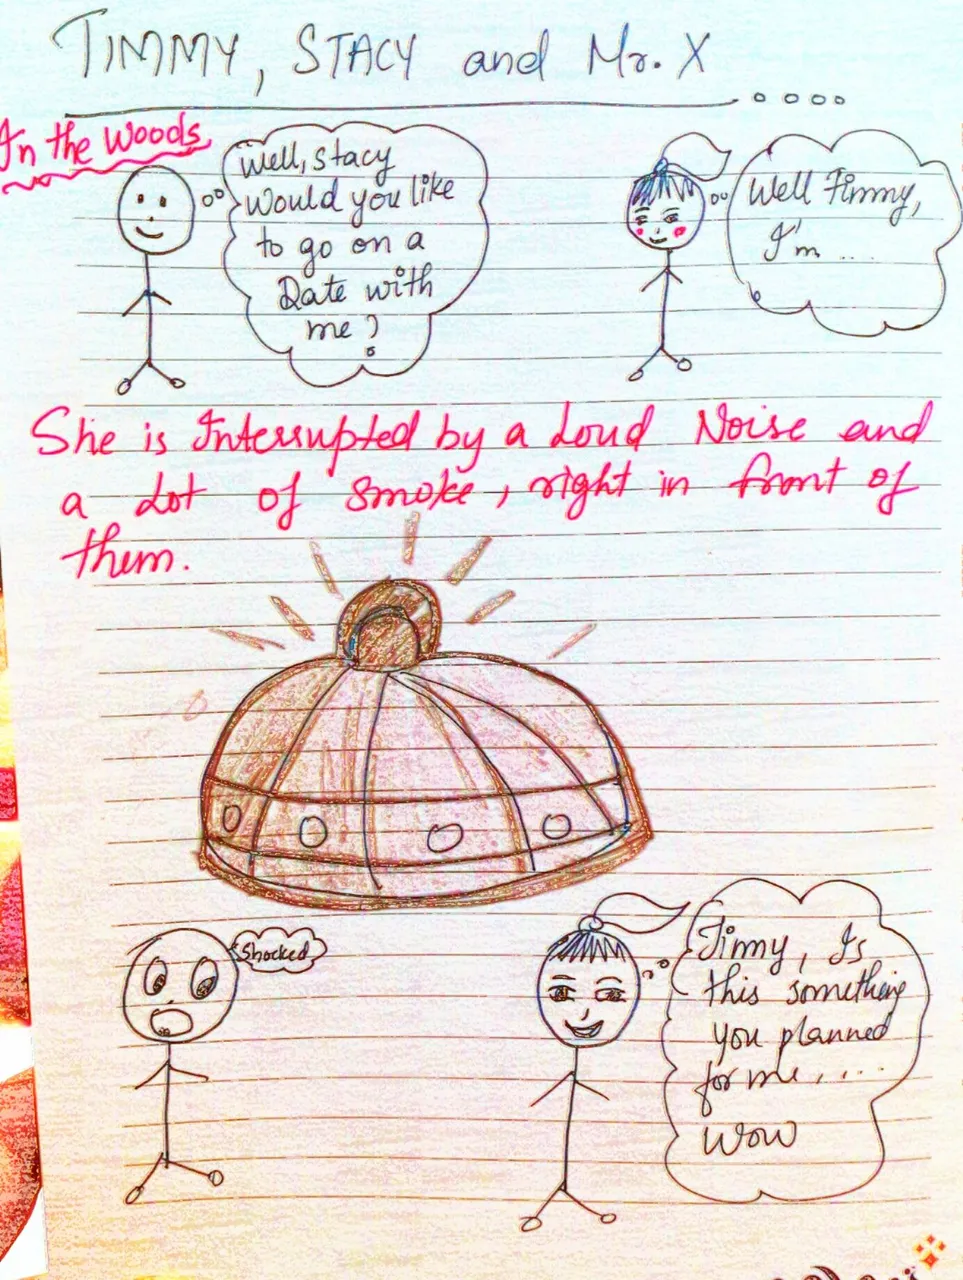 TIMMY, STACY and Mr. X
In the Woods
Well, Stacy
Would you like
to go on a
Date with
me?
Well Timmy,
I'm ....
She is Interrupted by a Loud Noise and
a Lot of smoke, right in front of
them.
Shocked
Timmy, Is
this something
you planned
for me, ....
wow